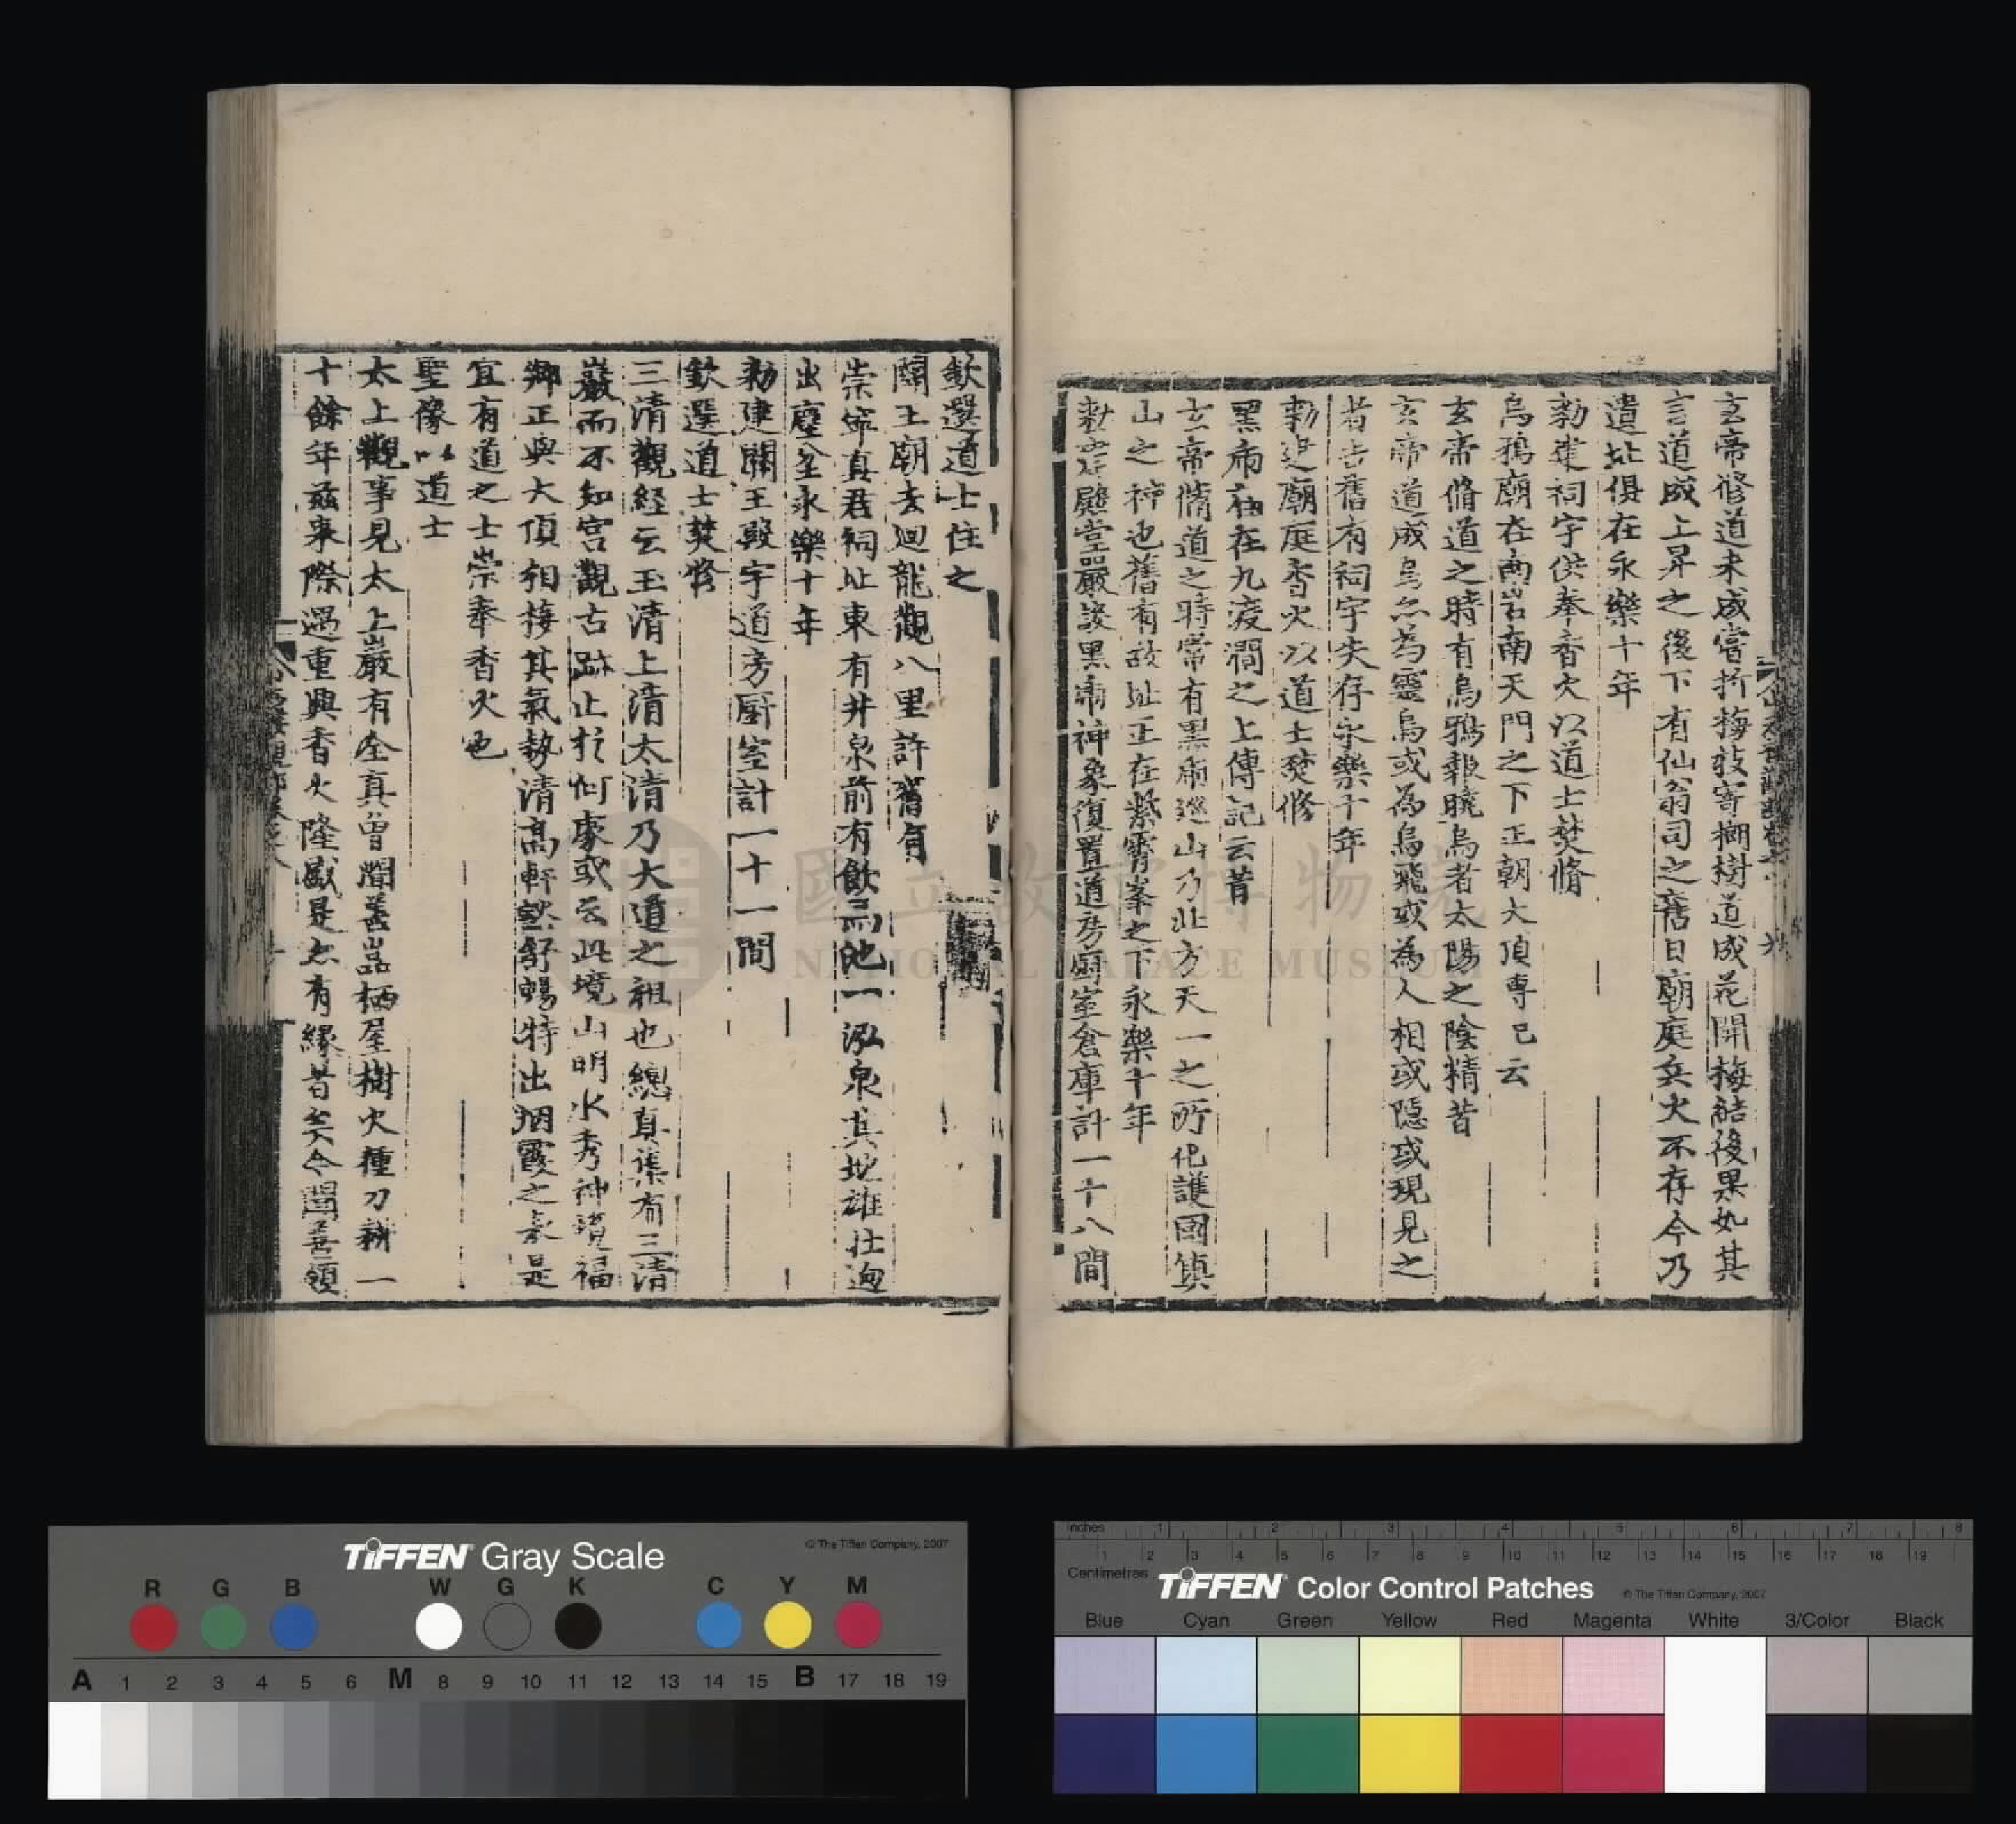 玄帝修道未成嘗折梅枝寄榔樹道成花開梅結後果如其
言道成上昇之後下有仙翁司之舊日廟庭兵火不存今乃
遺址俱在永樂十年
勑建祠宇供奉香火以道士焚脩
烏鴉廟在南岩南天門之下正朝大頂專已云
玄帝脩道之時有烏鴉報曉烏者太陽之陰精昔
玄帝道成烏亦為靈烏或為烏飛或為人相或隱或現見之
者吉舊有祠宇失存永樂十年
勑建廟庭香火以道士焚修
黑虎廟在九渡澗之上傳記云昔
玄帝脩道之時常有黑虎巡山乃北方天一之所化護國鎮
山之神也舊有故址正在紫霄峯之下永樂十年
勑建殿堂嚴設黑虎神像復置道房廚室倉庫計一十八間
欽選道士住之
關王廟去迴龍觀八里許舊有
崇寧真君祠址東有井泉前有飲馬池一泓泉其地雄壮迥
出塵坌永樂十年
勑建關王殿宇道旁厨室計一十一間
欽選道士焚修
三清觀経云玉清上清太清乃大道之祖也總真集有三清
巖而不知宮觀古跡止扵何處或云此境山明水秀神覽福
鄉正與大頂相接其氣勢清高軒豁舒暢特出烟霞之表是
宜有道之士崇奉香火也
聖像以道士
太上觀事見太上巖有全真曾闡善嵓栖屋樹火種刀耕一
十餘年茲来際遇重興香火隆盛是亦有緣昔矣今闡善領
國立故宮博物院
NATIONAL PALACE MUSEUM
TIFFEN Gray Scale
© The Tiffen Company, 2007
R G B W G K C Y M
A 1 2 3 4 5 6 M 8 9 10 11 12 13 14 15 B 17 18 19
Inches 1 2 3 4 5 6 7 8
1 2 3 4 5 6 7 8 9 10 11 12 13 14 15 16 17 18 19
Centimetres
TIFFEN Color Control Patches
© The Tiffen Company, 2007
Blue Cyan Green Yellow Red Magenta White 3/Color Black